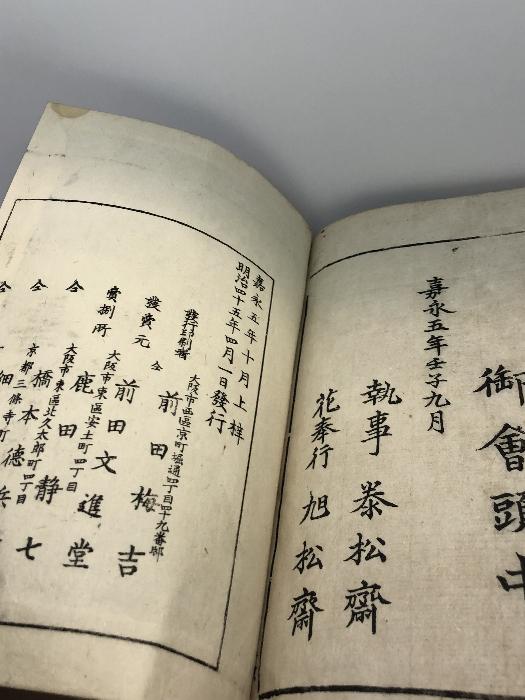 御會頭中
嘉永五年壬子九月
執事 㤗松齋
花奉行 旭松齋
嘉永五年十月上梓
明治四十五年四月一日發行
大阪市西區京町堀通四丁目四十九番邸
發行印刷者 前田梅吉
發賣元 仝 前田文進堂
大阪市東區安土町四丁目
賣捌所 鹿田靜七
大阪市東區北久太郎町四丁目
仝 橋本德
京都三條寺町
仝 細